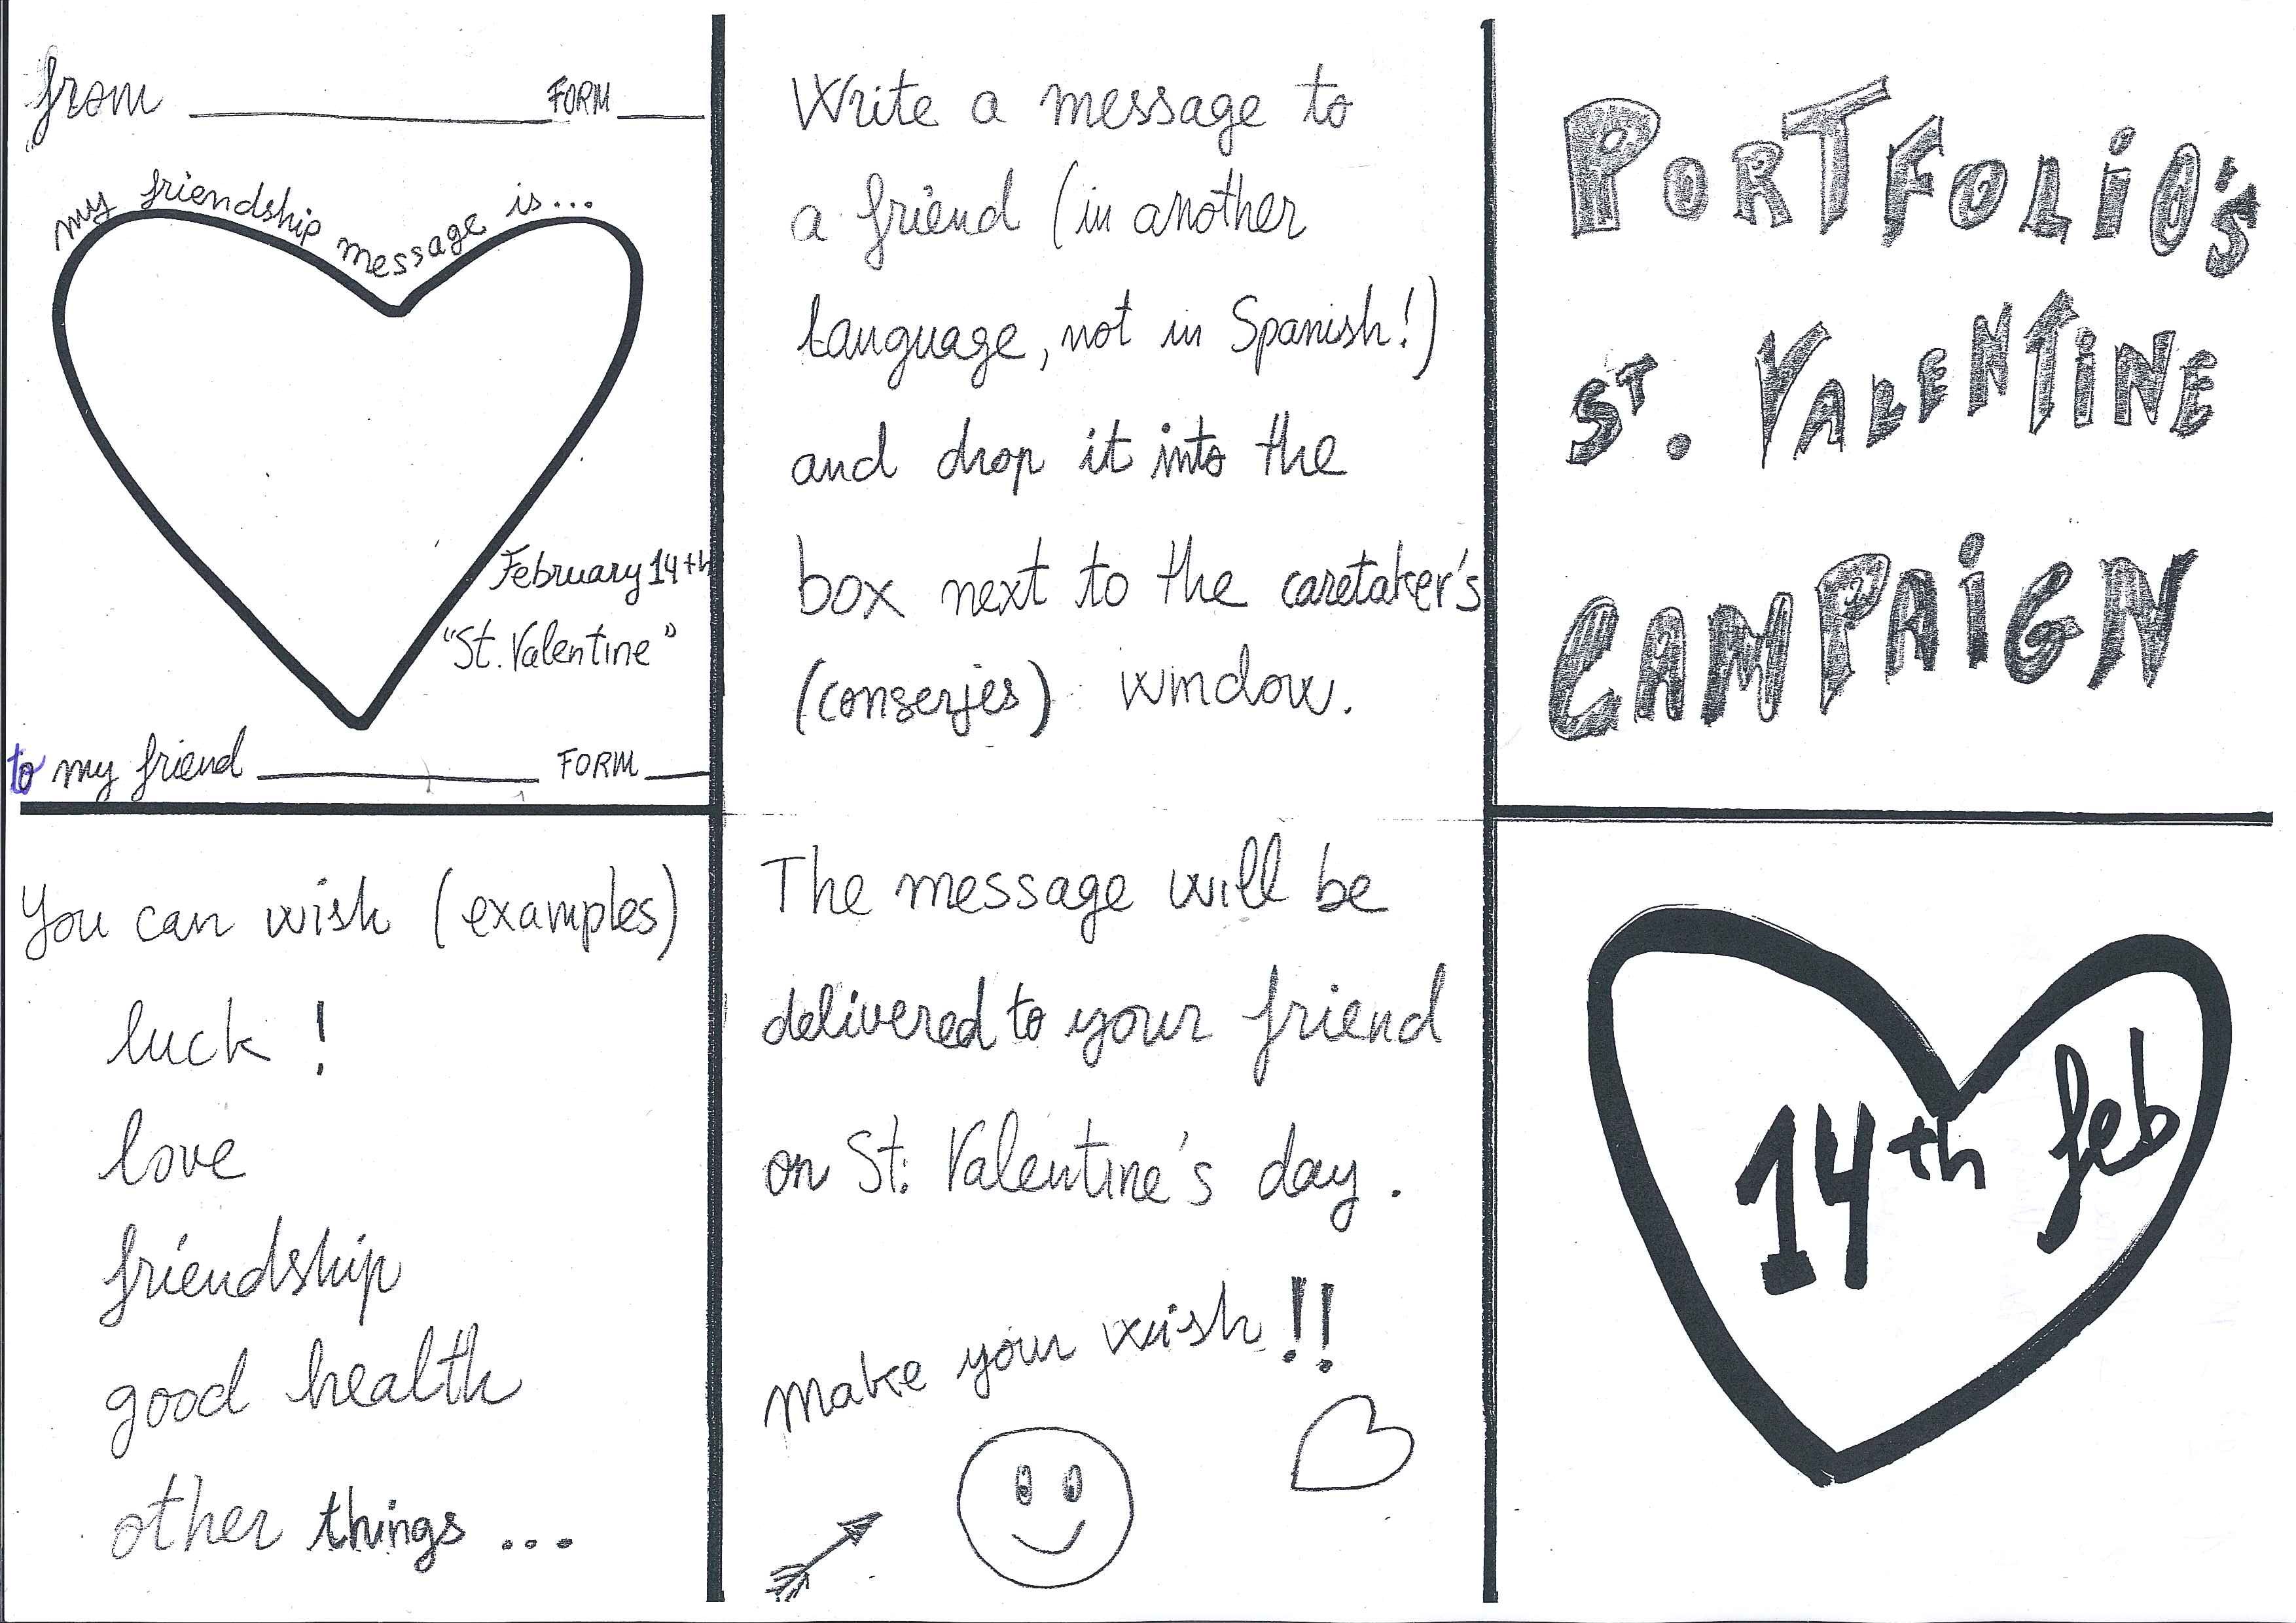 from ________ FORM ___
my friendship message is...
February 14th
"St. Valentine"
to my friend ________ FORM ___
Write a message to
a friend (in another
language, not in Spanish!)
and drop it into the
box next to the caretaker's
(conserjes) window.
PORTFOLIO'S
ST. VALENTINE
CAMPAIGN
You can wish (examples)
luck!
love
friendship
good health
other things ...
The message will be
delivered to your friend
on St. Valentine's day.
Make your wish!!
14th feb